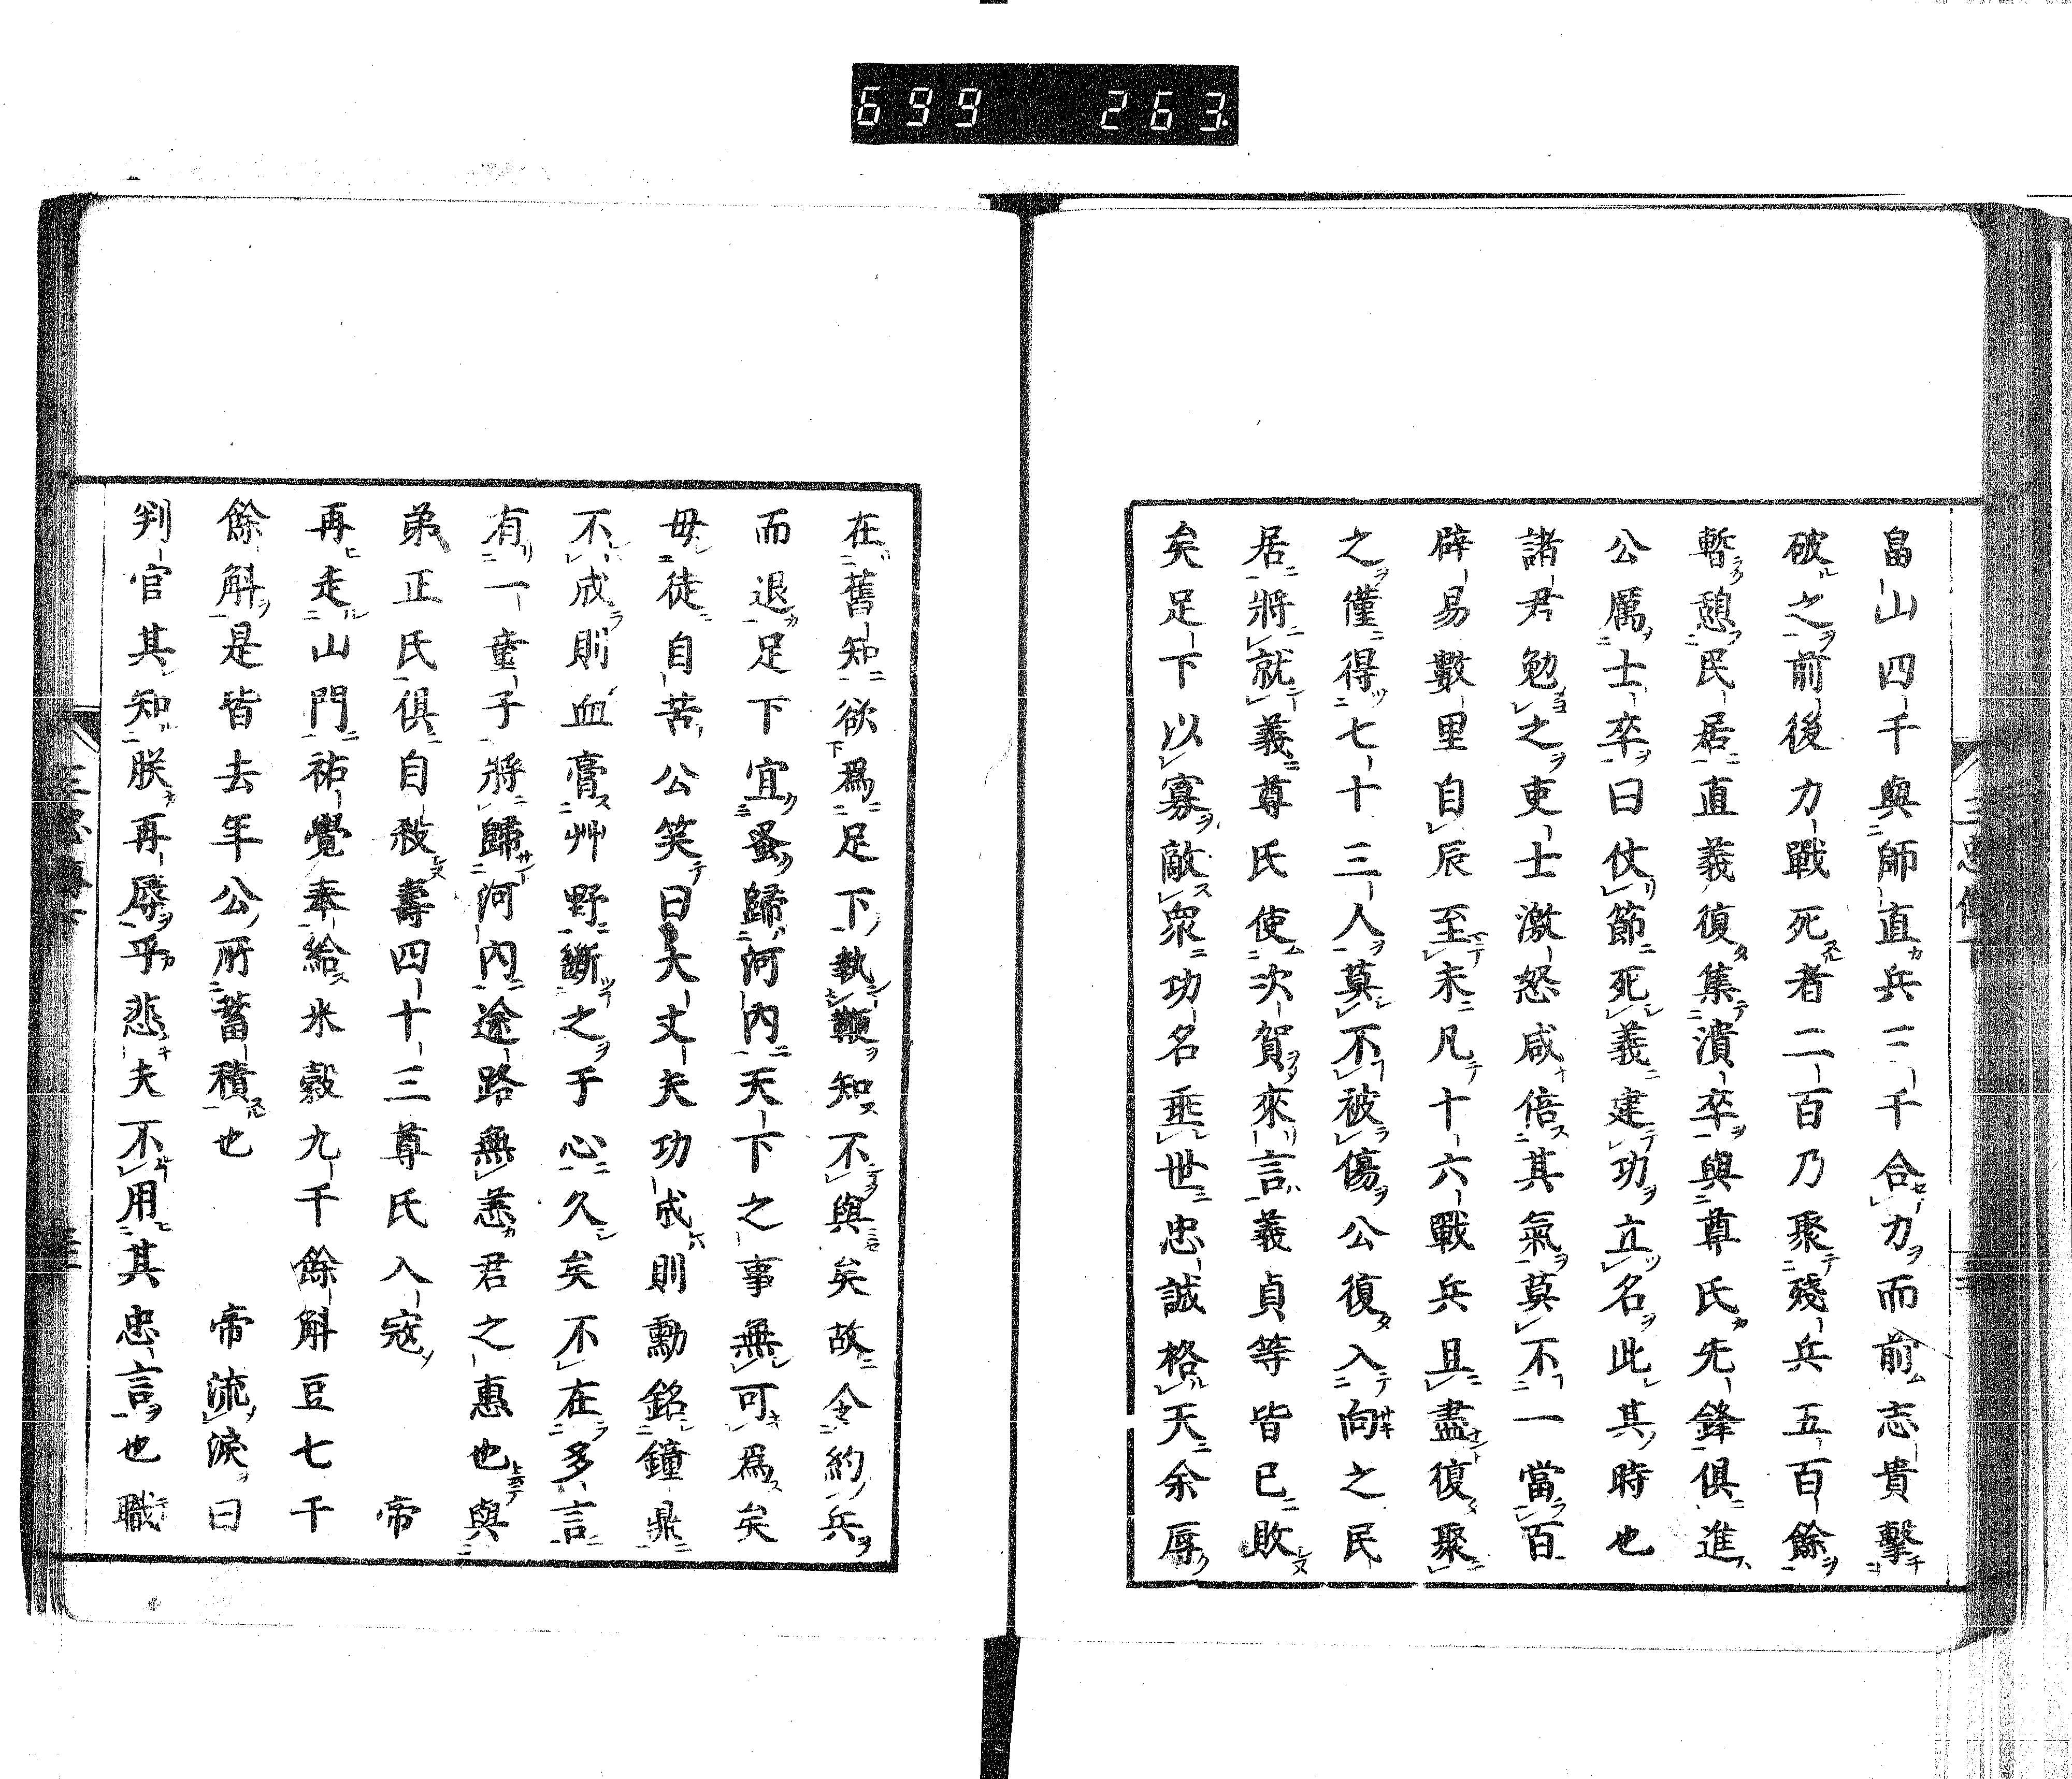 699 263
畠山四千與師直兵三千合力而前志貴擊
破之前後力戰死者二百乃聚殘兵五百餘
暫憩民居直義復集潰卒與尊氏先鋒俱進
公厲士卒曰仗節死義建功立名此其時也
諸君勉之吏士激怒咸倍其氣莫不一當百
辟易數里自辰至未凡十六戰兵且盡復聚
之僅得七十三人莫不被傷公復入向之民
居將就義尊氏使次賀來言義貞等皆已敗
矣足下以寡敵衆功名垂世忠誠格天余辱
在舊知欲爲足下執鞭知不與矣故令約兵
而退足下宜蚤歸河內天下之事無可爲矣
毋徒自苦公笑曰大丈夫功成則勳銘鐘鼎
不成則血膏艸野斷之于心久矣不在多言
有一童子將歸河內途路無恙君之惠也與
弟正氏俱自殺壽四十三尊氏入寇　帝
再走山門祐覺奉給米穀九千餘斛豆七千
餘斛是皆去年公所蓄積也　帝流淚曰
判官其知朕再辱乎悲夫不用其忠言也職